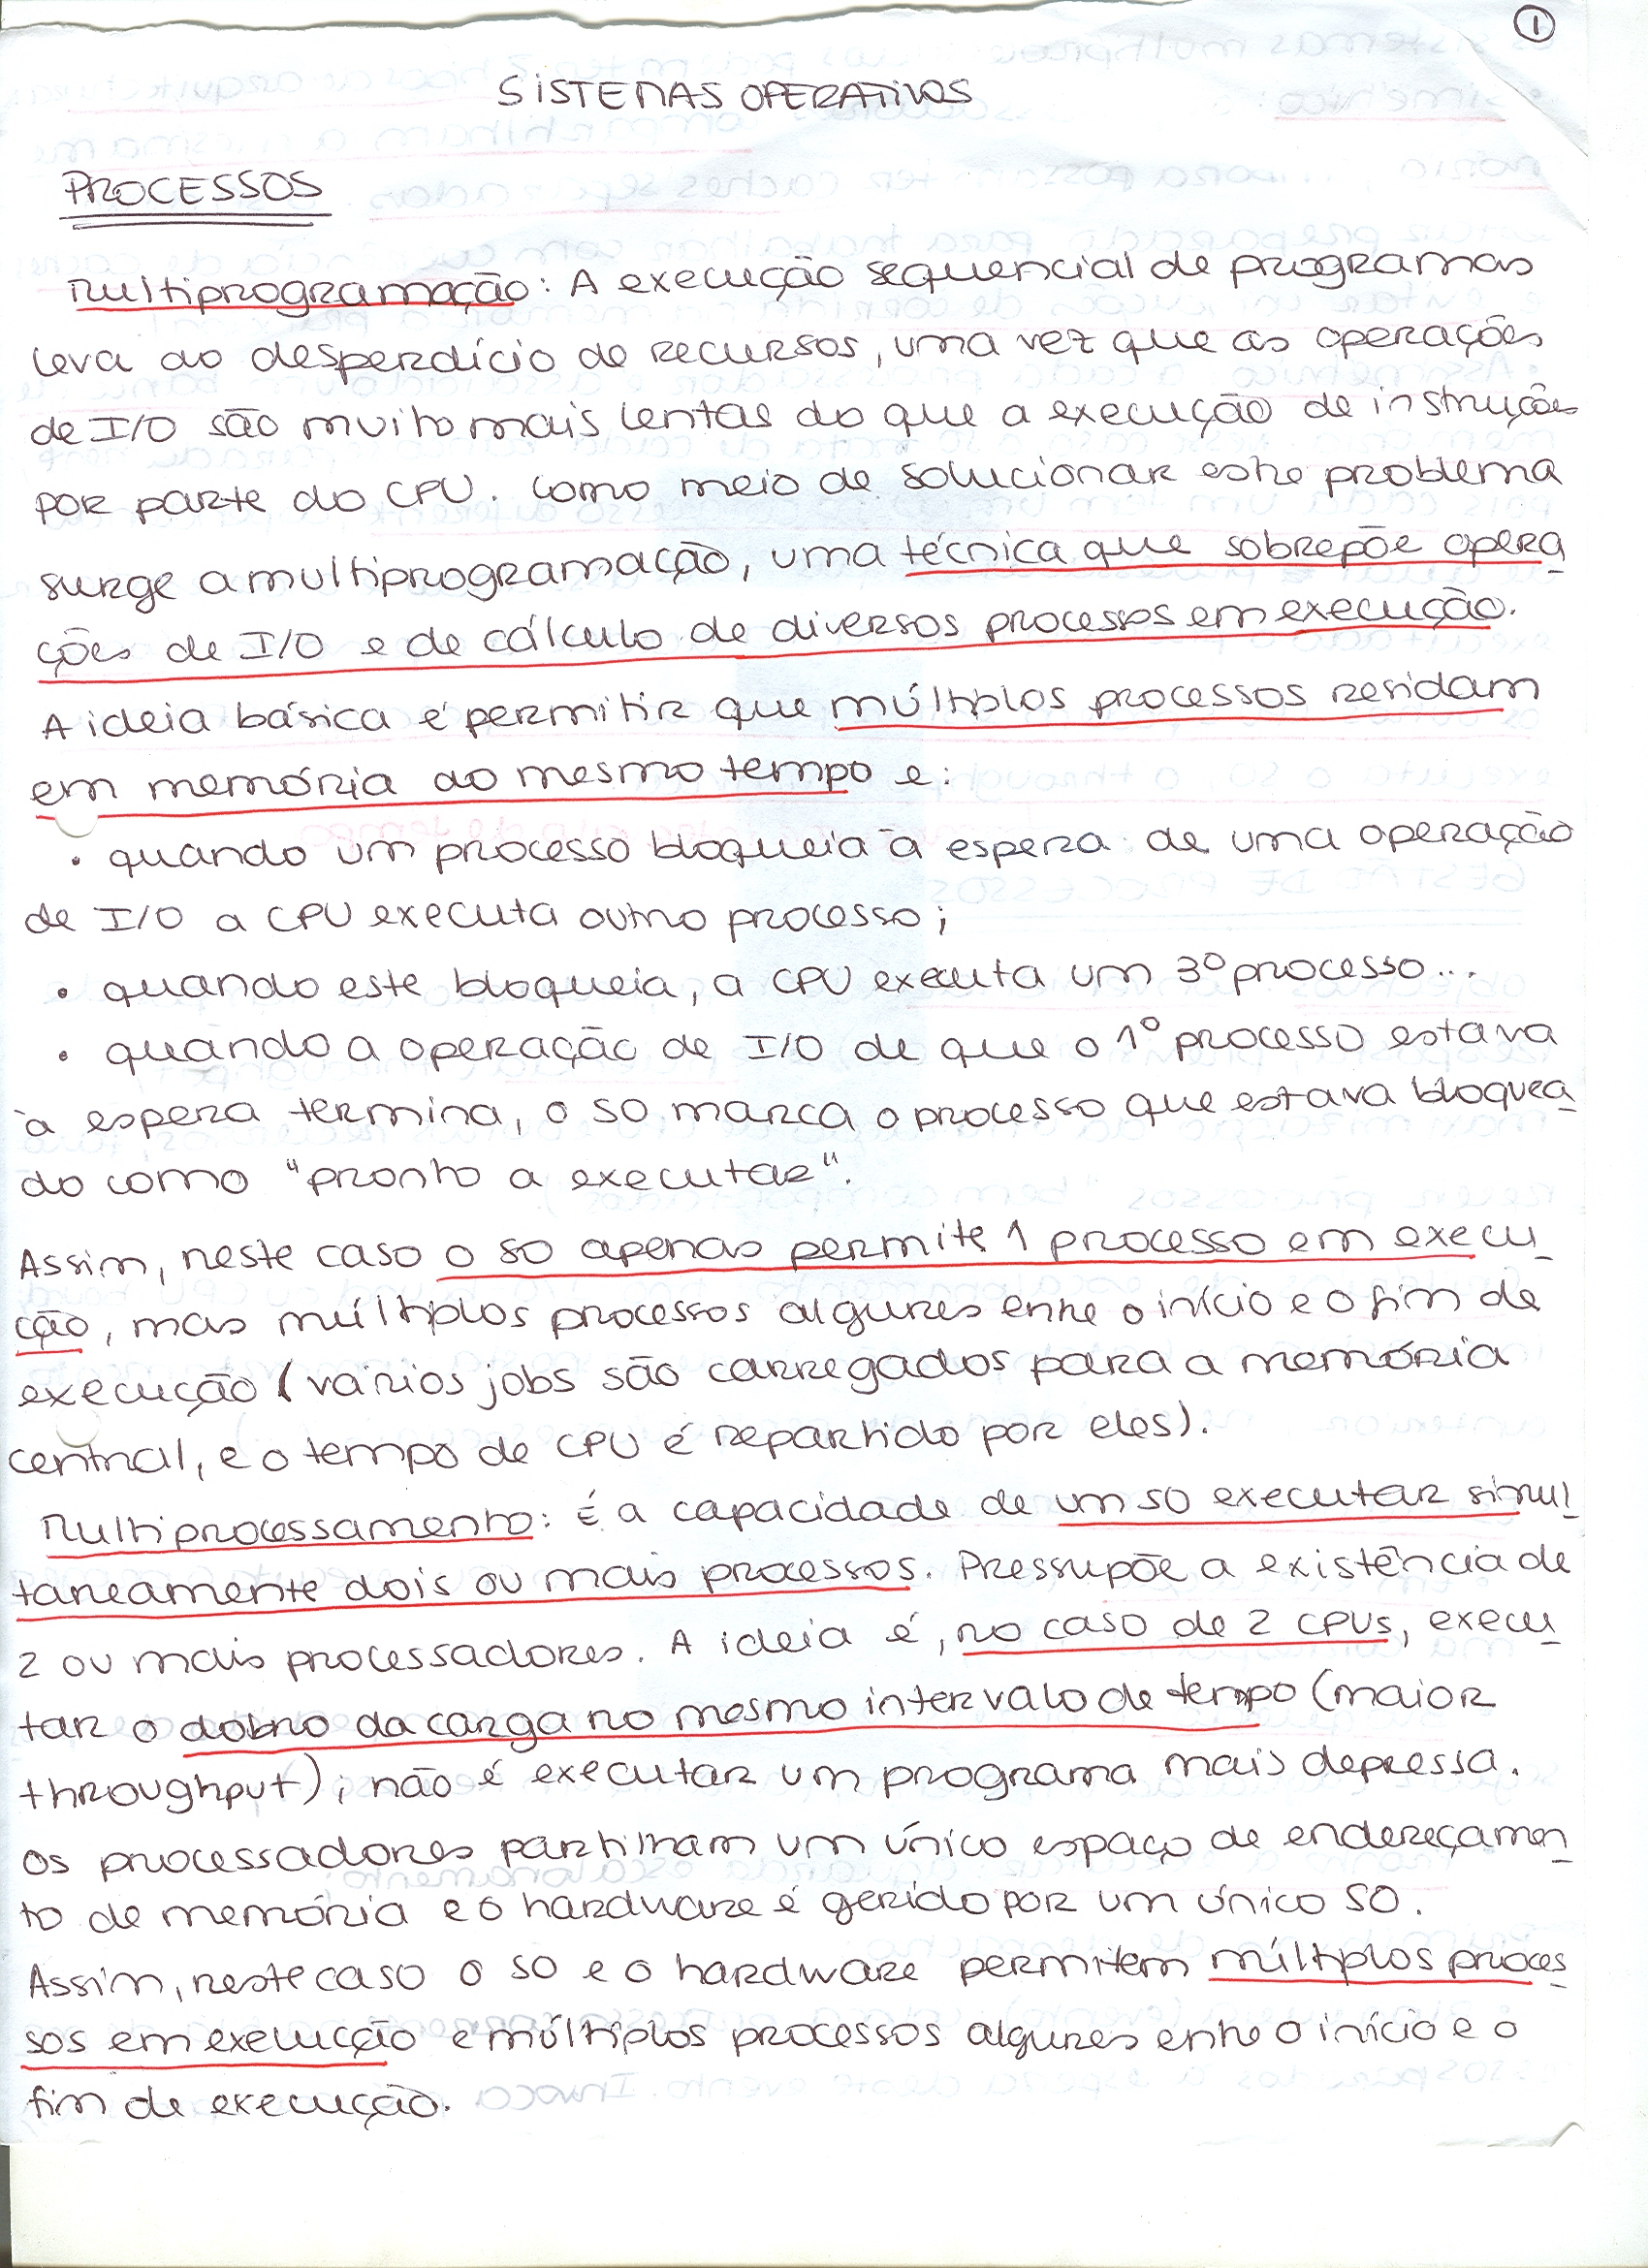 1
SISTEMAS OPERATIVOS
PROCESSOS
Multiprogramação: A execução sequencial de programas
leva ao desperdício de recursos, uma vez que as operações
de I/O são muito mais lentas do que a execução de instruções
por parte do CPU. Como meio de solucionar este problema
surge a multiprogramação, uma técnica que sobrepõe opera_
ções de I/O e de cálculo de diversos processos em execução.
A ideia básica é permitir que múltiplos processos residam
em memória ao mesmo tempo e:
• quando um processo bloqueia à espera de uma operação
de I/O a CPU executa outro processo;
• quando este bloqueia, a CPU executa um 3º processo...
• quando a operação de I/O de que o 1º processo estava
à espera termina, o SO marca o processo que estava bloquea_
do como "pronto a executar".
Assim, neste caso o SO apenas permite 1 processo em execu_
ção, mas múltiplos processos algures entre o início e o fim de
execução (vários jobs são carregados para a memória
central, e o tempo de CPU é repartido por eles).
Multiprocessamento: É a capacidade de um SO executar simul_
taneamente dois ou mais processos. Pressupõe a existência de
2 ou mais processadores. A ideia é, no caso de 2 CPUs, execu_
tar o dobro da carga no mesmo intervalo de tempo (maior
throughput); não é executar um programa mais depressa.
Os processadores partilham um único espaço de endereçamen_
to de memória e o hardware é gerido por um único SO.
Assim, neste caso o SO e o hardware permitem múltiplos proces_
sos em execução e múltiplos processos algures entre o início e o
fim de execução.